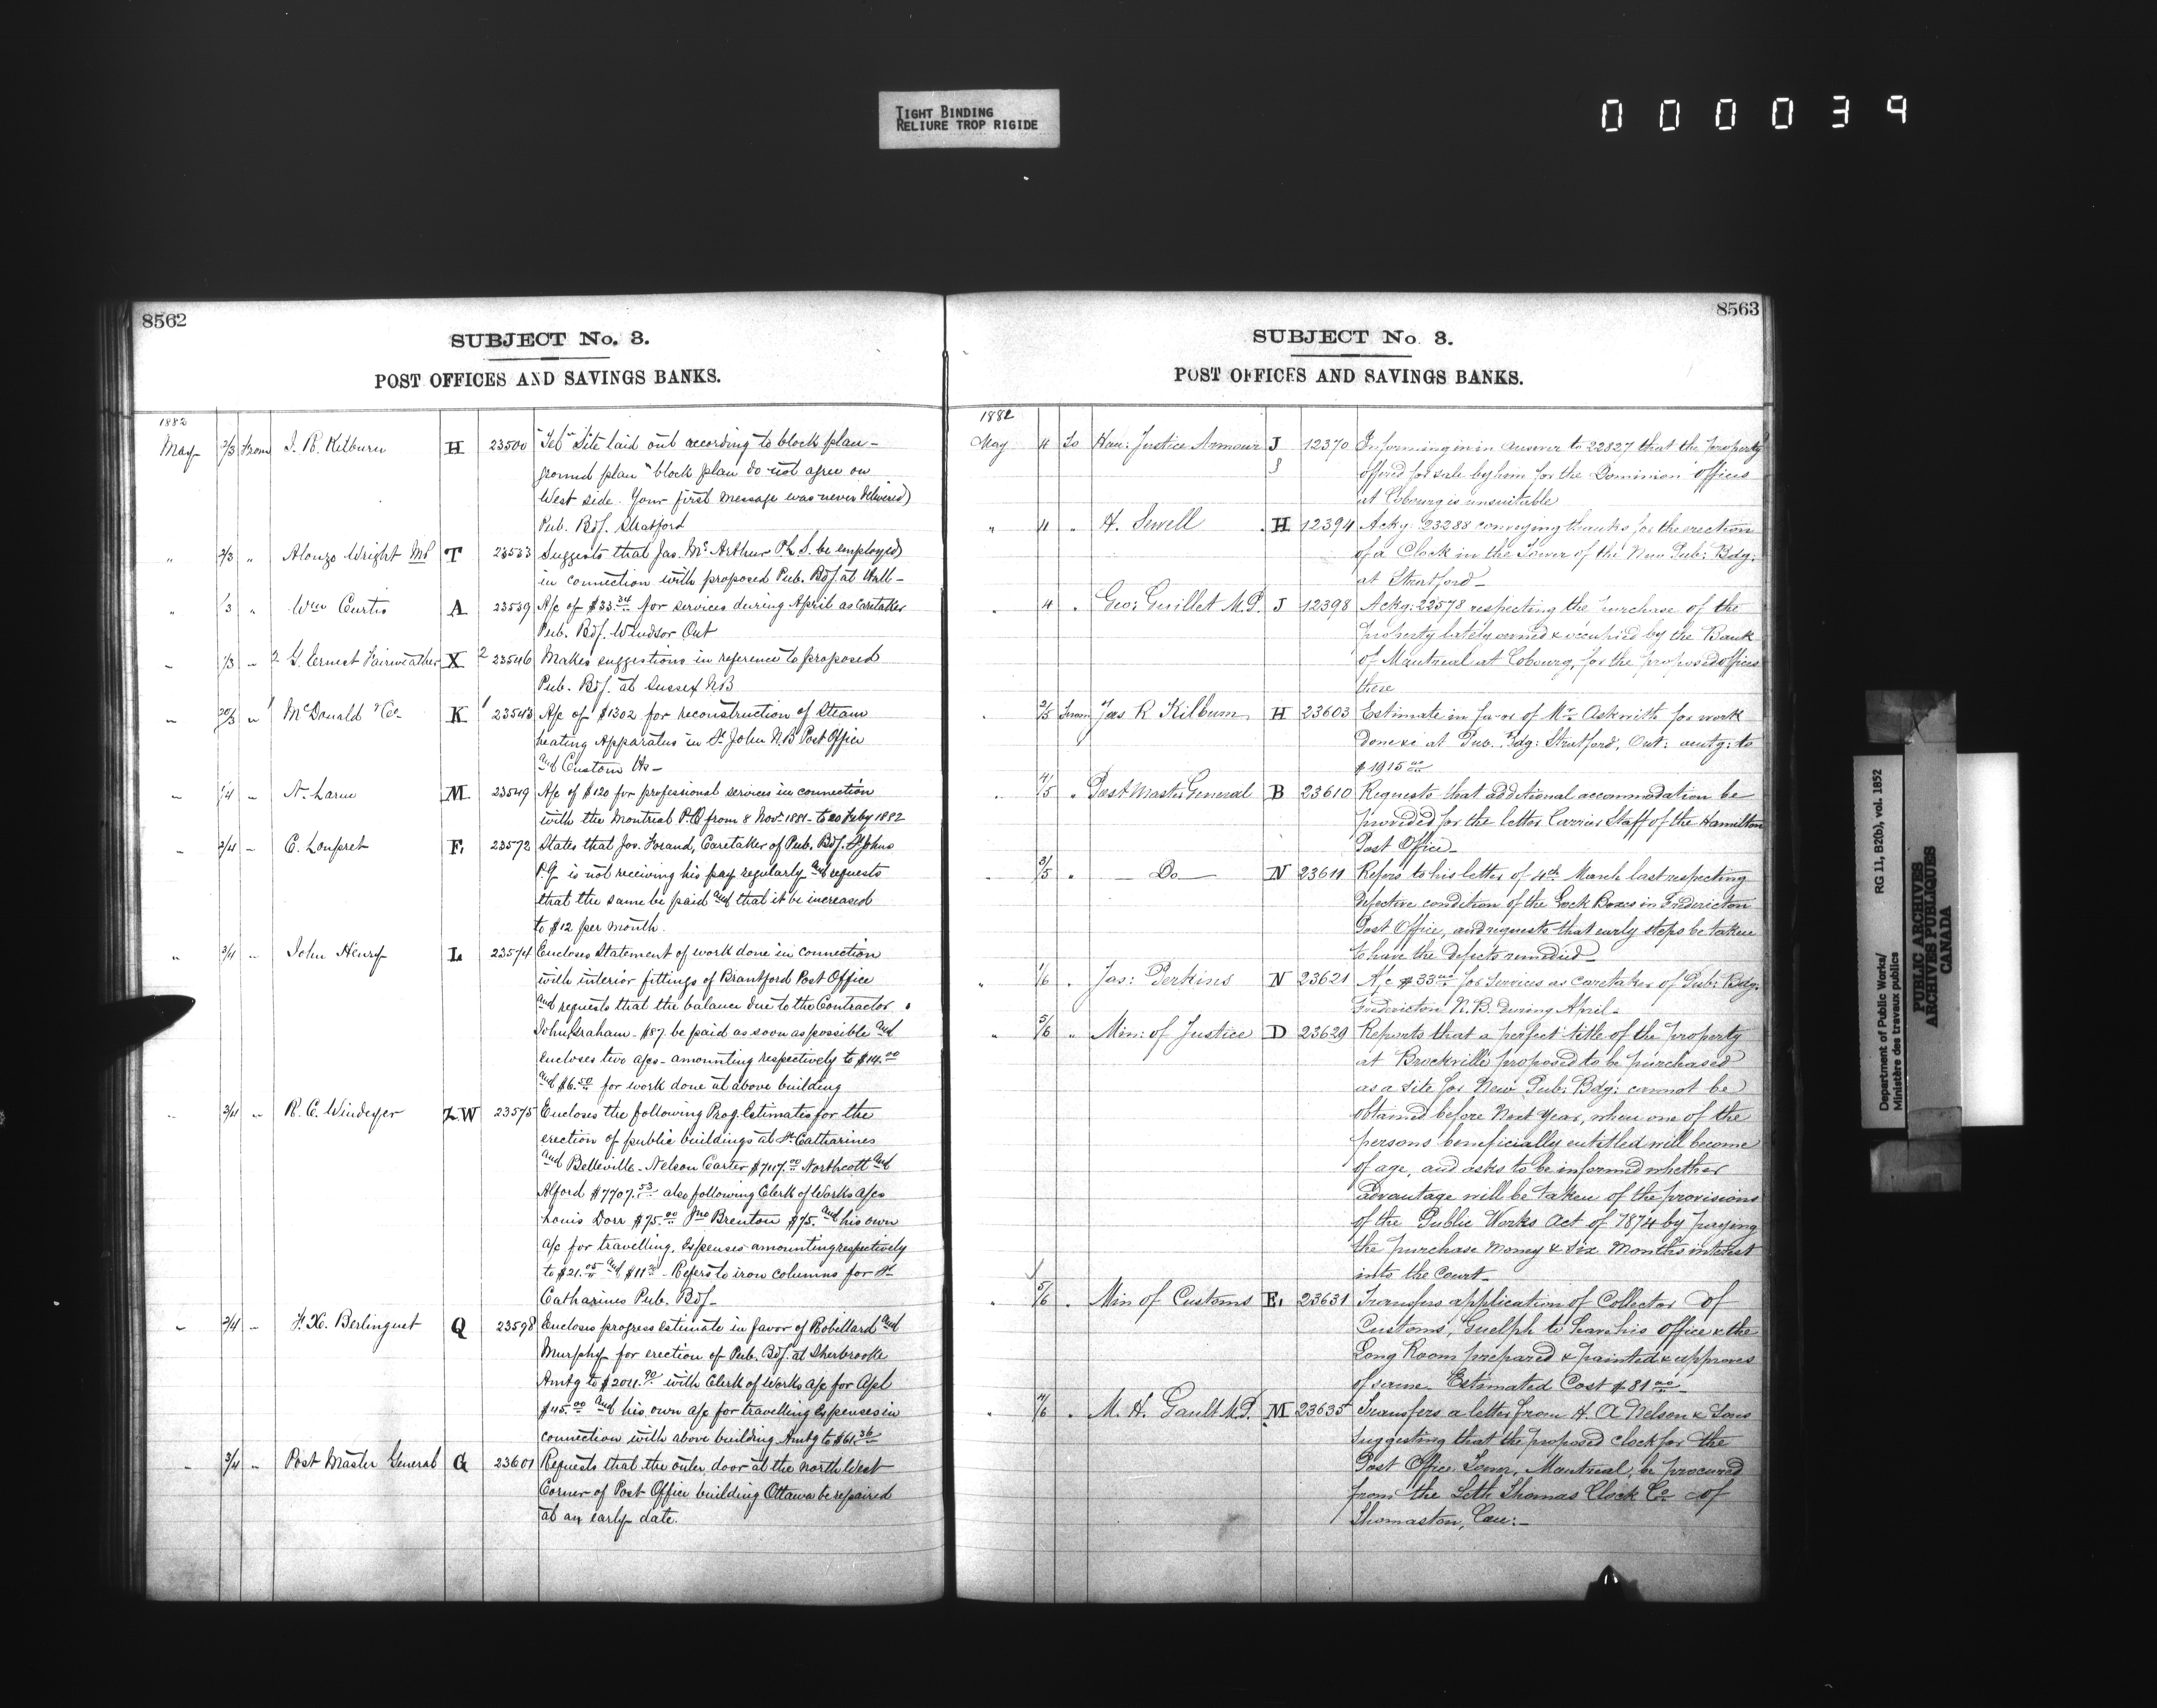 TIGHT BINDING
RELIURE TROP RIGIDE
000039
8562
SUBJECT No. 3.
POST OFFICES AND SAVINGS BANKS.
1882
May 2/3 From J. R. Kilburn H 23500 "Tel" Site laid out according to block plan -
ground plan " block plan do not agree on
West side. Your first message was never delivered
Pub. Bdg. Stratford
" 2/3 " Alonzo Wright MP T 23533 Suggests that Jas. McArthur P.L.S. be employed
in connection with proposed Pub. Bdg. at Hull -
" 1/3 " Wm Curtis A 23539 A/c of $33.34 for services during April as Caretaker
Pub. Bdg. Windsor Ont
" 1/3 " 2 G. Ernest Fairweather X 2 23546 Makes suggestions in reference to proposed
Pub. Bdg. at Sussex N.B
" 20/3 " 1 McDonald & Co K 1 23543 A/c of $1302 for reconstruction of Steam
heating Apparatus in St. John N.B Post Office
and Custom Hs -
" 1/4 " A. Larue M 23549 A/c of $120 for professional services in connection
with the Montreal P.O from 8 Nov. 1881 - to 20 Feby 1882
" 2/4 " C. Loupret F. 23572 States that Jos. Forand, Caretaker of Pub. Bdg. St Johns
P.Q is not receiving his pay regularly and requests
that the same be paid and that it be increased
to $12 per month.
" 2/4 " John Henry L 23574 Encloses Statement of work done in connection
with interior fittings of Brantford Post Office
and requests that the balance due to the Contractor
John Graham - $87. be paid as soon as possible and
encloses two a/cs - amounting respectively to $14.00
and $6.50 for work done at above building
" 2/4 " R. C. Windeyer Z.W 23575 Encloses the following Prog. Estimates for the
erection of public buildings at St. Catharines
and Belleville - Nelson Carter $7117.00 Northcott and
Alford $7707.53 also following Clerk of Works a/cs
Louis Dorr $75.00 Jno Brenton $75. and his own
a/c for travelling Expenses amounting respectively
to $21.05 and $11 - Refers to iron columns for St
Catharines Pub. Bdg -
" 2/4 " F. X. Berlinguet Q 23598 Encloses progress estimate in favor of Robillard and
Murphy for erection of Pub. Bdg. at Sherbrooke
Amtg to $2011.90 with Clerk of Works a/c for Apl
$45.00 and his own a/c for travelling Expenses in
connection with above building Amtg to $61.36
" 3/4 " Post Master General G 23601 Requests that the outer door at the north West
Corner of Post Office building Ottawa be repaired
at an early date.
8563
SUBJECT No. 3.
POST OFFICES AND SAVINGS BANKS.
1882
May 4 To Hon: Justice Armour J 12370 Informing him in answer to 22827 that the property
offered for sale by him for the Dominion offices
at Cobourg is unsuitable
" 4 " H. Sewell H 12394 Ackg: 23288 conveying thanks for the erection
of a Clock in the Tower of the New Pub: Bdg:
at Stratford -
" 4 " Geo: Guillet M.P. J 12398 Ackg: 22578 respecting the purchase of the
property lately owned & occupied by the Bank
of Montreal at Cobourg, for the proposed offices
there
" 2/5 From Jas R Kilburn H 23603 Estimate in favor of Mr. Askwith for work
done &c at Pub. Bdg: Stratford, Ont: amtg: to
$1915.00
" 4/5 " Post Master General B 23610 Requests that additional accommodation be
provided for the letter Carrier Staff of the Hamilton
Post Office -
" 3/5 " Do N 23611 Refers to his letter of 4th March last respecting
defective condition of the Lock Boxes in Fredericton
Post Office, and requests that early steps be taken
to have the defects remedied -
" 1/6 " Jas: Perkins N 23621 A/c $33.00 for Services as Caretaker of Pub: Bdg:
Fredericton N.B. during April -
" 5/6 " Min: of Justice D 23629 Reports that a perfect title of the property
at Brockville proposed to be purchased
as a site for New Pub: Bdg: cannot be
obtained before Next Year, when one of the
persons beneficially entitled will become
of age, and asks to be informed whether
advantage will be taken of the provisions
of the Public Works Act of 1874 by paying
the purchase Money & Six Months interest
into the Court -
" 5/6 " Min of Customs E. 23631 Transfers application of Collector of
Customs, Guelph to have his office & the
Long Room prepared & painted & approves
of same - Estimated Cost $81.00 -
" 4/6 " M. H. Gault M.P. M 23635 Transfers a letter from H. A Nelson & Sons
suggesting that the proposed clock for the
Post Office Tower, Montreal, be procured
from the Seth Thomas Clock Co - of
Thomaston, Con: -
Department of Public Works/ RG 11, B2(b), vol. 1852
Ministère des travaux publics
PUBLIC ARCHIVES
ARCHIVES PUBLIQUES
CANADA